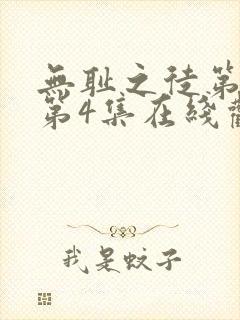 無耻之徒第
第4集在綫
我是蚊子